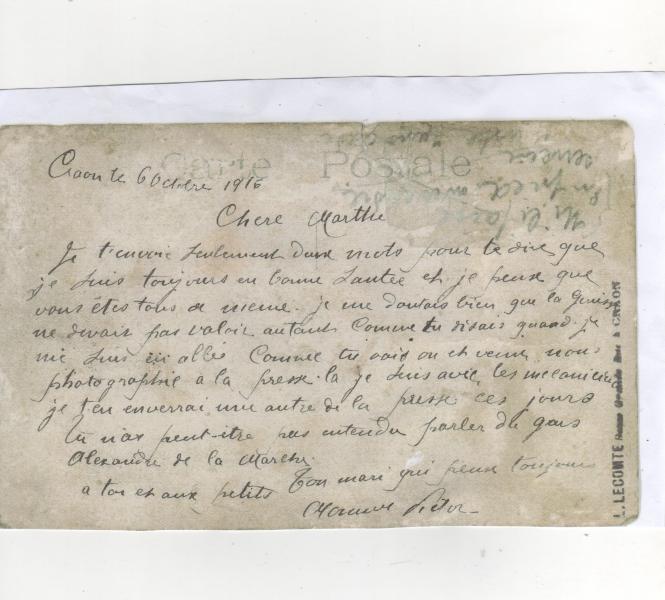 Carte Postale
Craon le 6 Octobre 1916
Chere Marthe
Je t'envoie seulement deux mots pour te dire que
je suis toujours en bonne santée et je pense que
vous êtes tous de meme. je me doutais bien que la
ne devais pas valoir autant comme tu disais quand je
me suis en allée Comme tu vois on est venu nous
photographié a la presse la je suis avec les mecaniciens
je t'en enverrai une autre de la presse ces jours
tu n'as peut-être pas entendu parler du gars
Alexandre de la
Ton mari qui pense toujours
a toi et aux petits
L. LECOMTE Grande Rue à CRAON